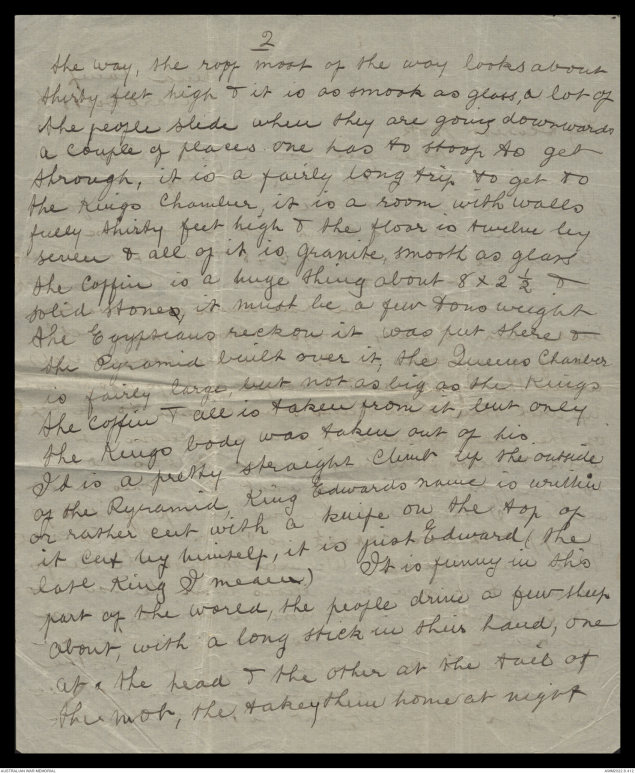 2
the way, the roff most of the way looks about
thirty feet high & it is as smook as glass, a lot of
the people slide when they are going downwards
a couple of places one has to stoop to get
through, it is a fairly long trip to get to
the Kings Chamber, it is a room with walls
fully thirty feet high & the floor is twelve by
seven & all of it is granite, smooth as glass
the Coffin is a huge thing about 8 x 2 ½ &
solid stones, it must be a few tons weight
the Egyptians reckon it was put there &
the Pyramid built over it, the Queens Chamber
is fairly large, but not as big as the Kings
the Coffin & all is taken from it, but only
the Kings body was taken out of his
It is a pretty straight climb up the outside
of the Pyramid, King Edwards name is written
or rather cut with a knife on the top of
it cut by himself, it is just Edward (the
late King I mean) It is funny in this
part of the world, the people drive a few sheep
about, with a long stick in their hand, one
at the head & the other at the tail of
the mob, the takeythem home at night
AUSTRALIAN WAR MEMORIAL